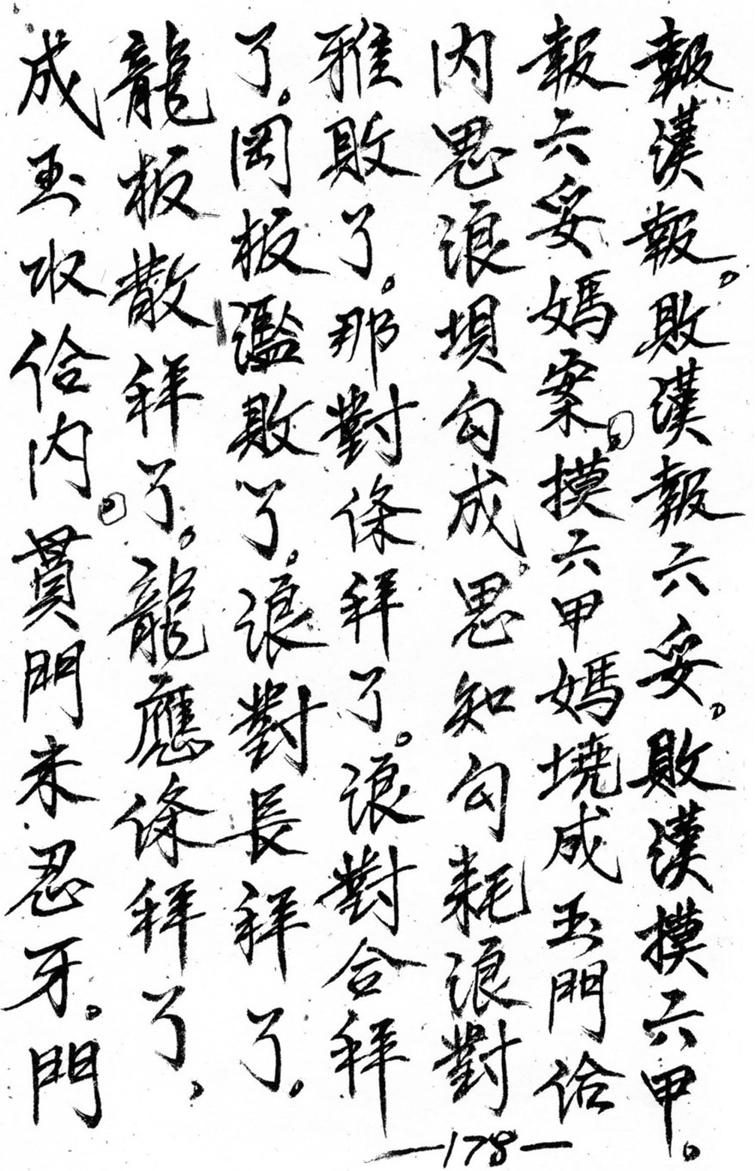 報漢報。敗漢報六妥。敗漢摸六甲。
報六妥媽案。摸六甲媽境成玉門佮
内思浪垻勾成。思知勾耗浪對
雅敗了。那對條拜了。浪對合拜
了。岡板濫敗了。浪對長拜了。
龍板散拜了。龍應條拜了,
成玉収佮内。貫門未忍牙。門
—178—